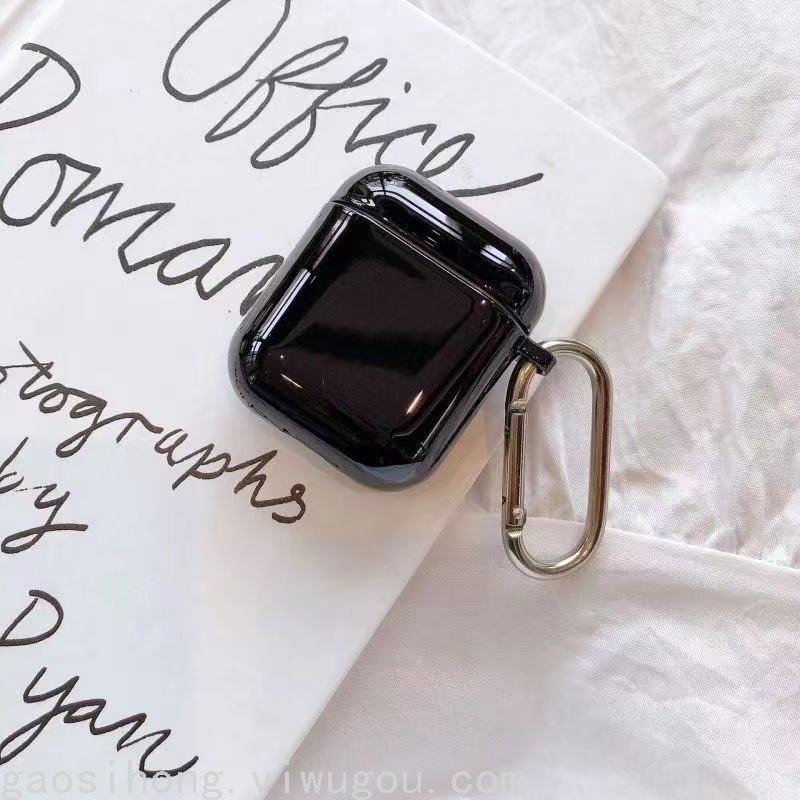 Office
Roman
otographs
by
D
yan
gaosihong.yiwugou.com